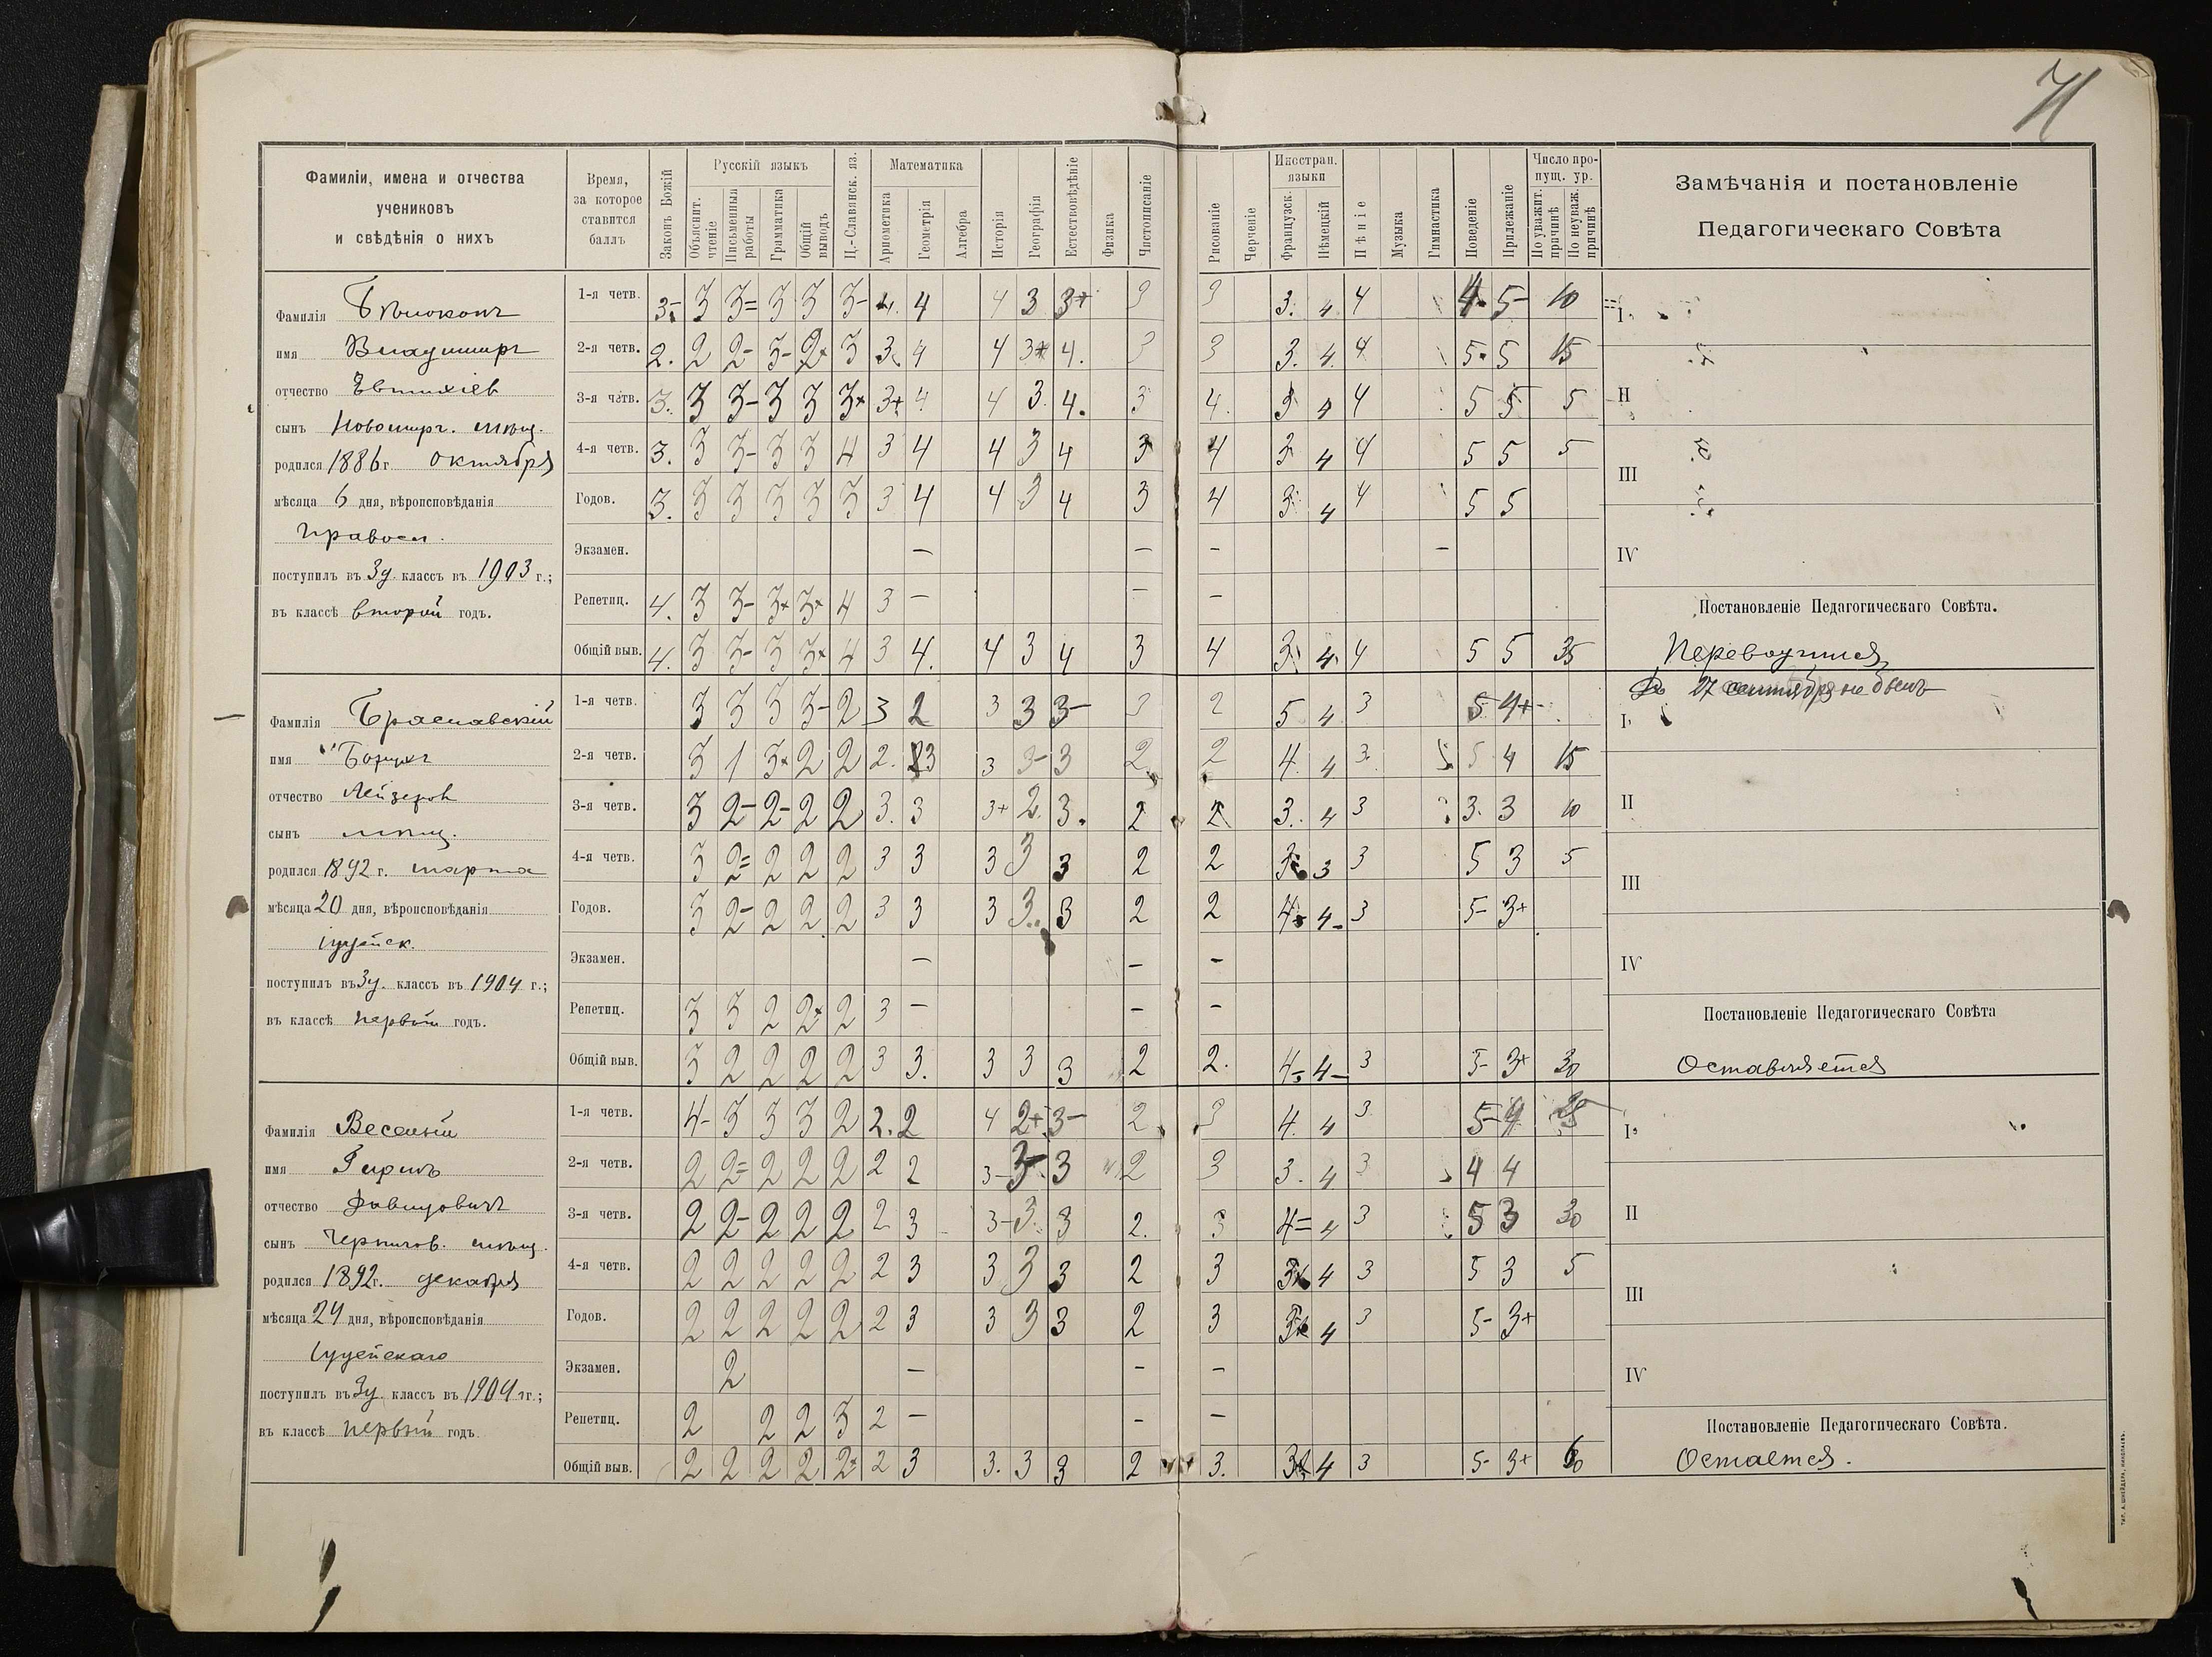 71
Фамиліи, имена и отчества
учениковъ
и свѣдѣнія о нихъ
Время,
за которое
ставится
баллъ
Законъ Божій
Русскій языкъ
Объяснит. чтеніе
Письменныя работы
Грамматика
Общій выводъ
Ц.-Славянск. яз.
Математика
Ариѳметика
Геометрія
Алгебра
Исторія
Географія
Естествовѣдѣніе
Физика
Чистописаніе
Рисованіе
Черченіе
Иностран. языки
Французск.
Нѣмецкій
Пѣніе
Музыка
Гимнастика
Поведеніе
Прилежаніе
Число про-
пущ. ур.
По уважит. причинѣ
По неуваж. причинѣ
Замѣчанія и постановленіе
Педагогическаго Совѣта
Фамилія
имя Владиміръ
отчество Евтихіев
сынъ Новомирг. мѣщ.
родился 1886 г. октября
мѣсяца 6 дня, вѣроисповѣданія
правосл.
поступилъ въ 3й классъ въ 1903 г.;
въ классѣ второй годъ.
1-я четв. 3- 3 3= 3 3 3- 4. 4 4 3 3+ 3 3 3. 4 4 4 5- 10
2-я четв. 2. 2 2- 3- 2+ 3 3. 4 4 3+ 4. 3 3 3. 4. 4 5 5 15
3-я четв. 3. 3 3- 3 3 3+ 3+ 4 4 3. 4. 3 4. 3 4 4 5 5 5
4-я четв. 3. 3 3- 3 3 4 3 4 4 3 4 3 4 3 4 4 5 5 5
Годов. 3. 3 3 3 3 3 3 4 4 3 4 3 4 3 4 4 5 5
Экзамен. — — — —
Репетиц. 4. 3 3- 3+ 3+ 4 3 — — —
Общій выв. 4. 3 3- 3 3+ 4 3 4. 4 3 4 3 4 3 4. 4 5 5 35
I
II
III
IV
Постановленіе Педагогическаго Совѣта.
Переводится
Фамилія Браславскій
имя
отчество Лейзеров
сынъ мѣщ.
родился 1892 г. марта
мѣсяца 20 дня, вѣроисповѣданія
іудейск.
поступилъ въ 3й классъ въ 1904 г.;
въ классѣ первый годъ.
1-я четв. 3 3 3 3- 2 3 2 3 3 3- 3 2 5 4 3 5 4+
2-я четв. 3 1 3+ 2 2 2. 3 3 3- 3 2 2 4. 4 3 5 4 15
3-я четв. 3 2- 2- 2 2 3. 3 3+ 2. 3. 2 2 3. 4 3 3. 3 10
4-я четв. 3 2= 2 2 2 3 3 3 3 3 2 2 3 3 3 5 3 5
Годов. 3 2- 2 2 2 3 3 3 3 3 2 2 4- 4- 3 5- 3+
Экзамен. — — —
Репетиц. 3 3 2 2+ 2 3 — — —
Общій выв. 3 2 2 2 2 3 3. 3 3 3 2 2. 4- 4- 3 5- 3+ 30
До 27 сентября не былъ
I
II
III
IV
Постановленіе Педагогическаго Совѣта
Оставляется
Фамилія Веселый
имя Гиршъ
отчество Давидовичъ
сынъ Чернигов. мѣщ.
родился 1892 г. декабря
мѣсяца 24 дня, вѣроисповѣданія
Іудейскаго
поступилъ въ 3й классъ въ 1904 г.;
въ классѣ первый годъ.
1-я четв. 4- 3 3 3 2 2. 2 4 2+ 3- 2 3 4. 4 3 5- 4
2-я четв. 2 2= 2 2 2 2 2 3- 3- 3 2 3 3. 4 3 4 4
3-я четв. 2 2- 2 2 2 2 3 3- 3 3 2. 3 4= 4 3 5 3 30
4-я четв. 2 2 2 2 2 2 3 3 3 3 2 3 3 4 3 5 3 5
Годов. 2 2 2 2 2 2 3 3 3 3 2 3 3 4 3 5- 3+
Экзамен. 2 — — —
Репетиц. 2 2 2 3 2 — — —
Общій выв. 2 2 2 2 2+ 2 3 3. 3 3 2 3. 3 4 3 5- 3+ 60
I
II
III
IV
Постановленіе Педагогическаго Совѣта.
Остается.
Тип. А. Шнейдера, Николаевъ.